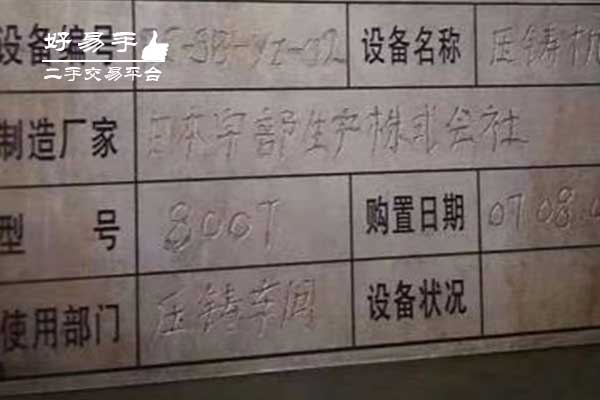 好易手
二手交易平台
设备编号 -SB-YZ-02 设备名称 压铸机
制造厂家 日本宇部生产株式会社
型 号 800T 购置日期 07.08.
使用部门 压铸车间 设备状况